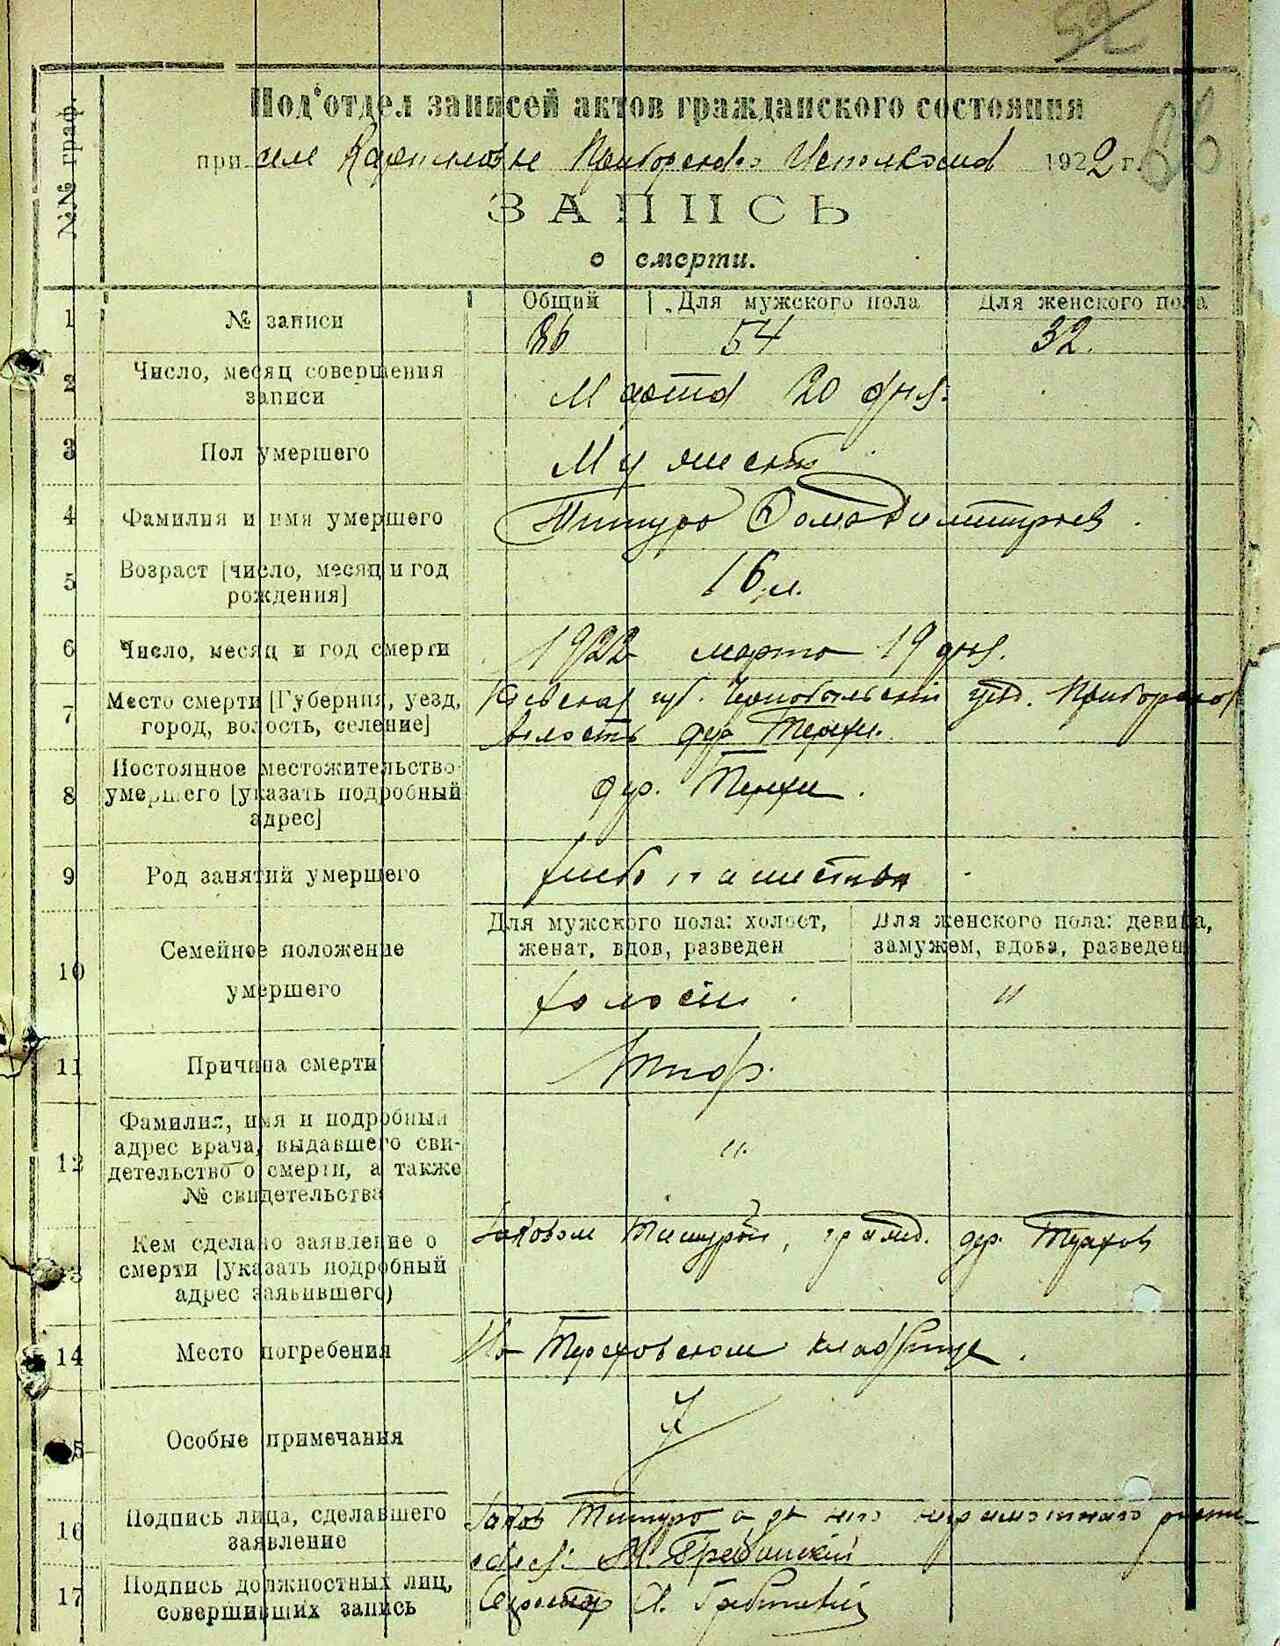 52
86
№№ граф.
Под'отдел записей актов гражданского состояния
при селе Карпиловке Приборского Исполкома 1922 г.
ЗАПИСЬ
о смерти.
1 № записи
Общий Для мужского пола Для женского пола
86 54 32.
2 Число, месяц совершения
записи
Марта 20 дня.
3 Пол умершего
Мужеск
4 Фамилия и имя умершего
Титуро Фома Димитриев.
5 Возраст [число, месяц и год
рождения]
16 л.
6 Число, месяц и год смерти
1922 марта 19 дня.
7 Место смерти [Губерния, уезд,
город, волость, селение]
Киевская губ. Чернобыльский уезд. Приборской
волость дер. Терехи.
8 Постоянное местожительство
умершего [указать подробный
адрес]
дер. Терехи.
9 Род занятий умершего
хлебопашество
10 Семейное положение
умершего
Для мужского пола: холост,
женат, вдов, разведен
Для женского пола: девица,
замужем, вдова, разведен
холост. "
11 Причина смерти
Тиф.
12 Фамилия, имя и подробный
адрес врача, выдавшего сви-
детельство о смерти, а также
№ свидетельства
"
13 Кем сделано заявление о
смерти [указать подробный
адрес заявившего)
Яковом Титурой, гражд. дер. Терехов
14 Место погребения
На Тереховском кладбище.
15 Особые примечания
16 Подпись лица, сделавшего
заявление
Яков Титуро а за него неграмотного
17 Подпись должностных лиц,
совершивших запись